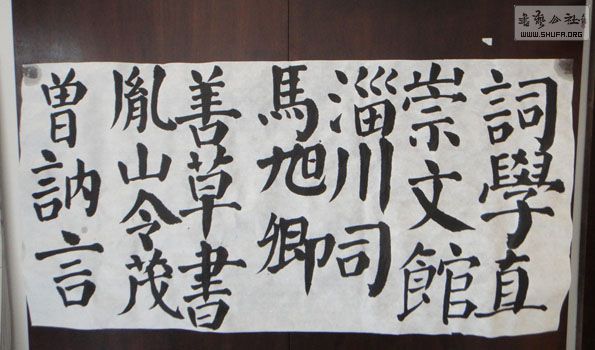 詞學直
崇文館
淄川司
馬旭卿
善草書
胤山令茂
曾訥言
書藝公社
WWW.SHUFA.ORG